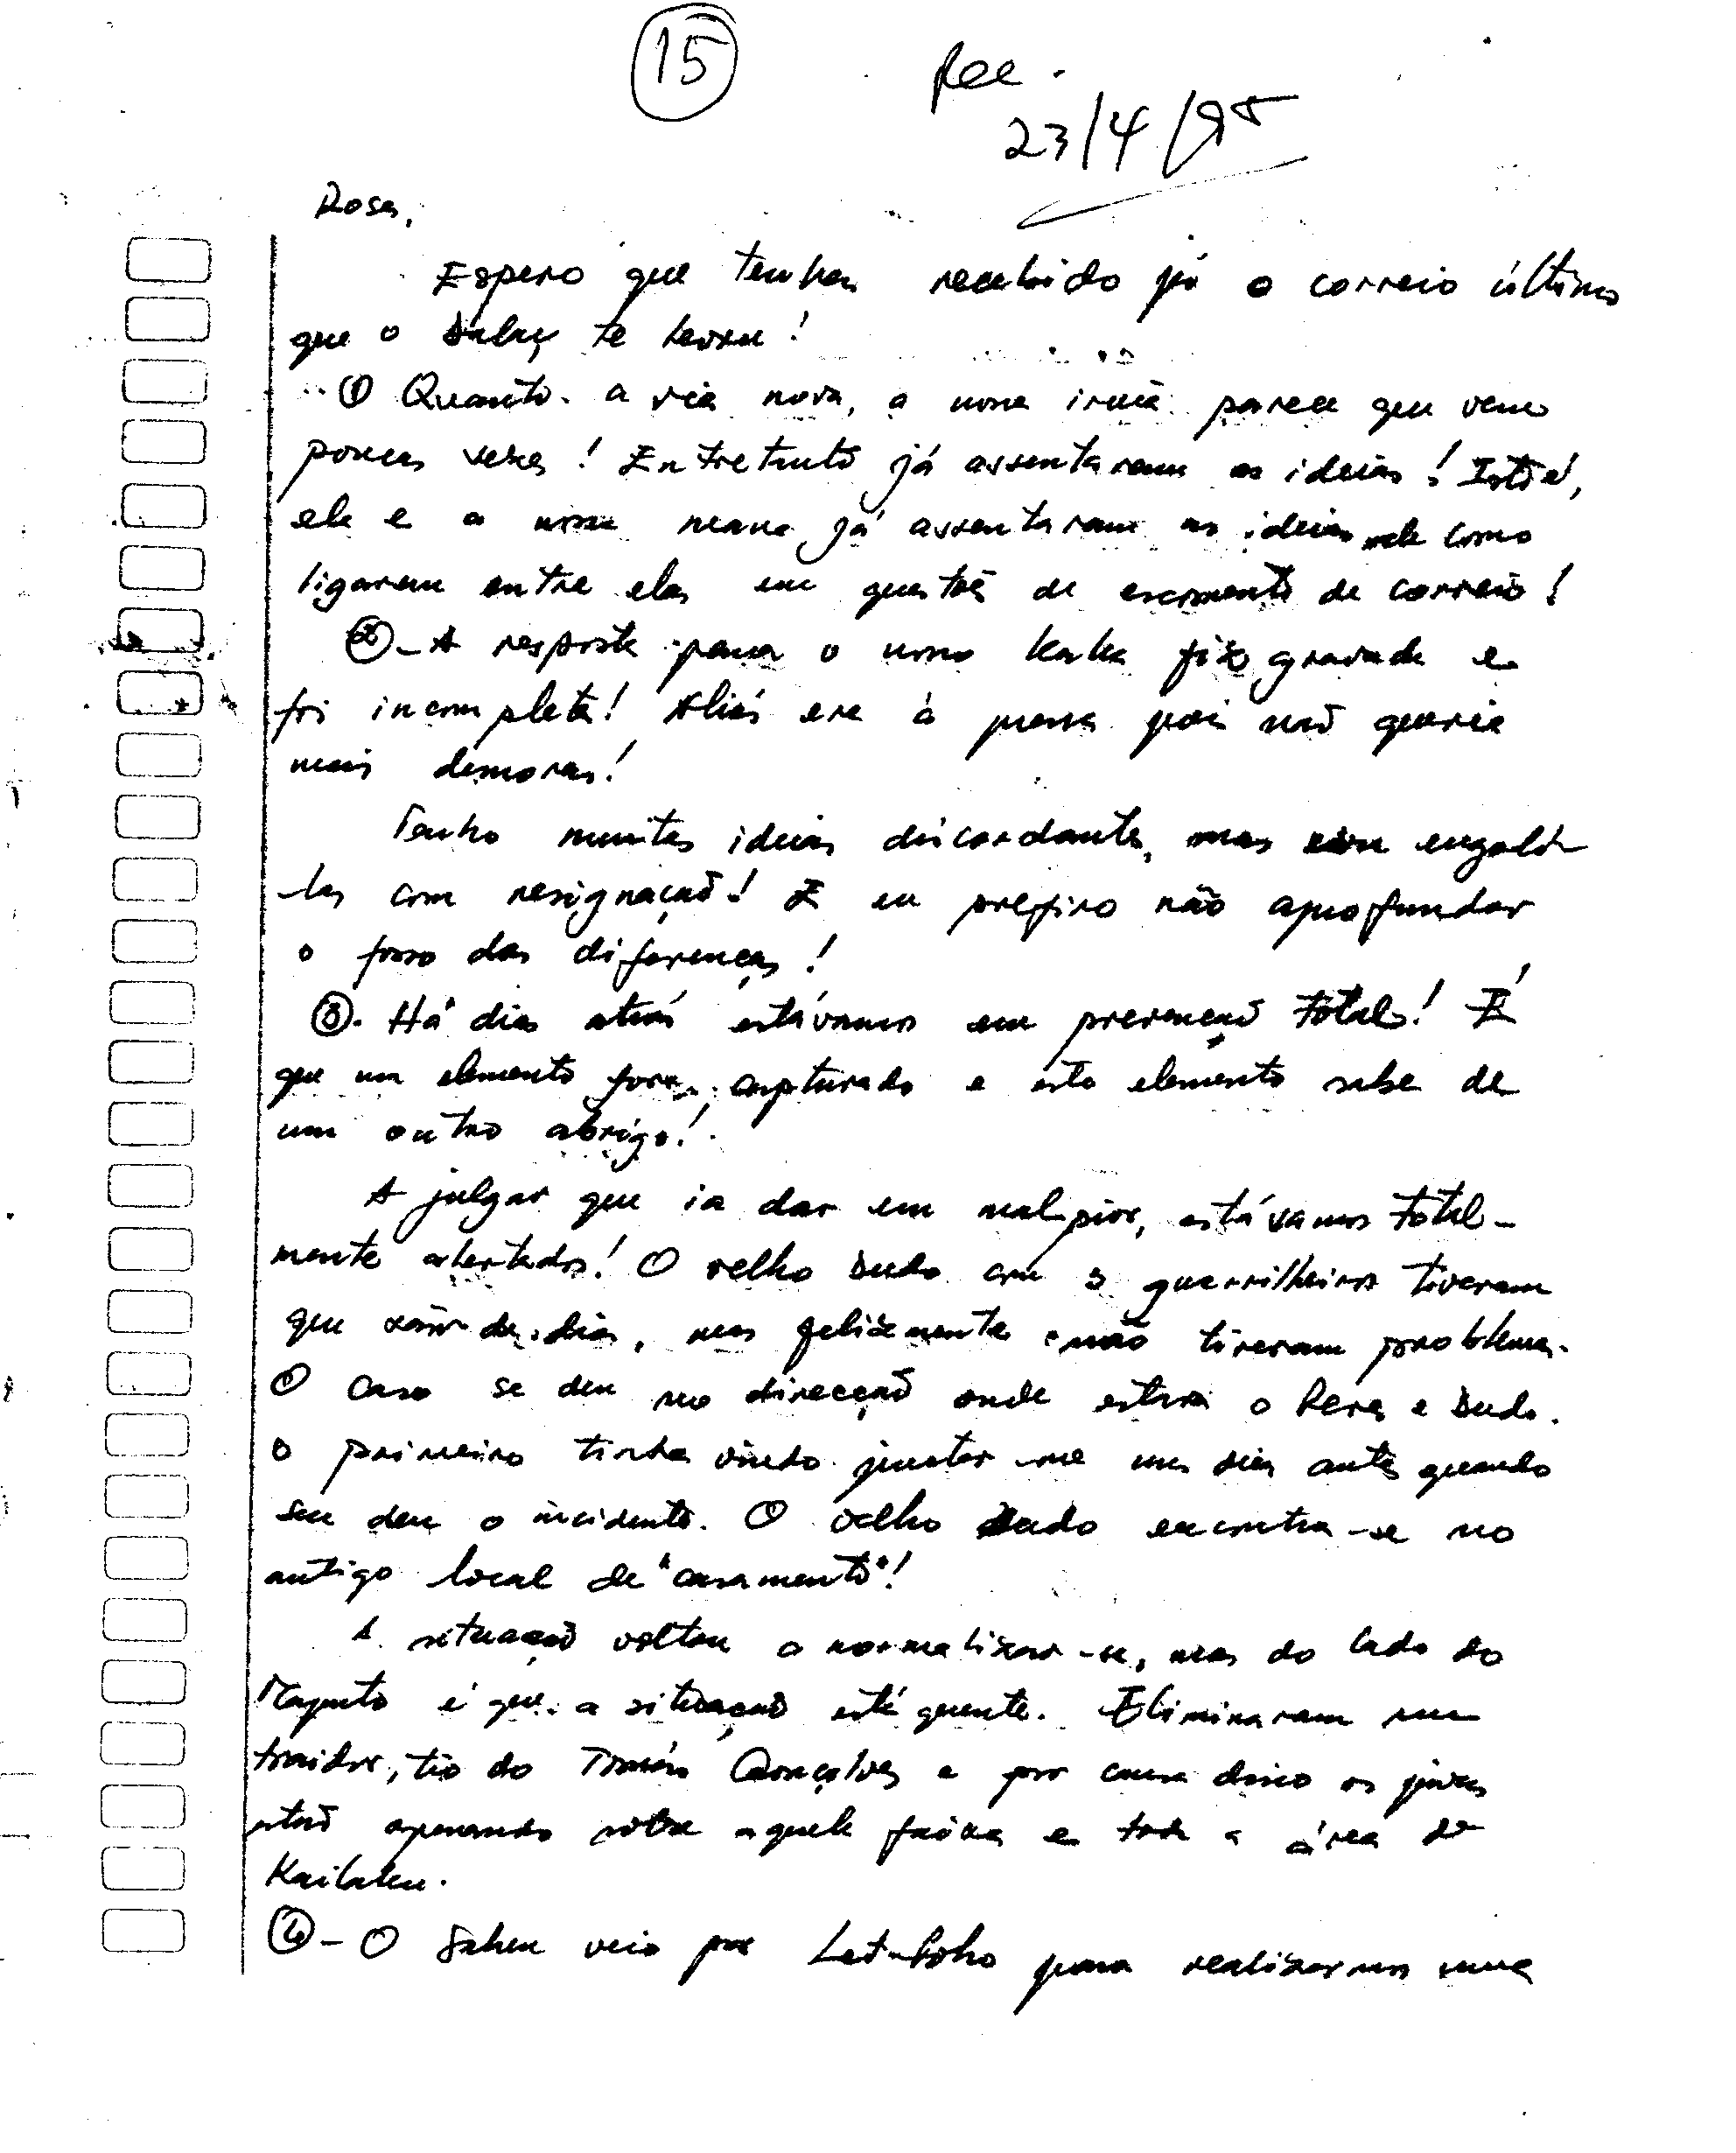 15
Rec.
23/4/95
Rosa,
Espero que tenhas recebido já o correio último
que o te levou!
① Quanto a via nova, a nossa irmã parece que vem
poucas vezes! Entretanto já assentaram as ideias! Isto é,
ele e a nossa mana já assentaram as ideias de como
ligarem entre elas em questões de escoamento de correio!
②- A resposta para o nosso kaka foi gravada e
foi incompleta! Aliás era à pressa pois não queria
mais demoras!
Tenho muitas ideias discordantes, mas engoli-
-las com resignação! E eu prefiro não aprofundar
o fosso das diferenças!
③. Há dias atrás estávamos em prevenção total! É
que um elemento fora capturado e este elemento sabe de
um outro abrigo!
A julgar que ia dar em mal pior, estávamos total-
mente alertados! O velho Dudo com 3 guerrilheiros tiveram
que sair de dia, mas felizmente não tiveram problemas.
O caso se deu na direcção onde estava o Peres e Dudo.
O primeiro tinha vindo juntar-me uns dias antes quando
se deu o incidente. O velho Dudo encontra-se no
antigo local de "casamento"!
A situação voltou a normalizar-se, mas do lado do
Maputo é que a situação está quente. Eliminaram um
traidor, tio do Tomás Gonçalves e por causa disso os javas
estão operando sobre aquela faixa e toda a área de
Kailaku.
④- O Sabu veio por Let-Foho para realizarmos uma